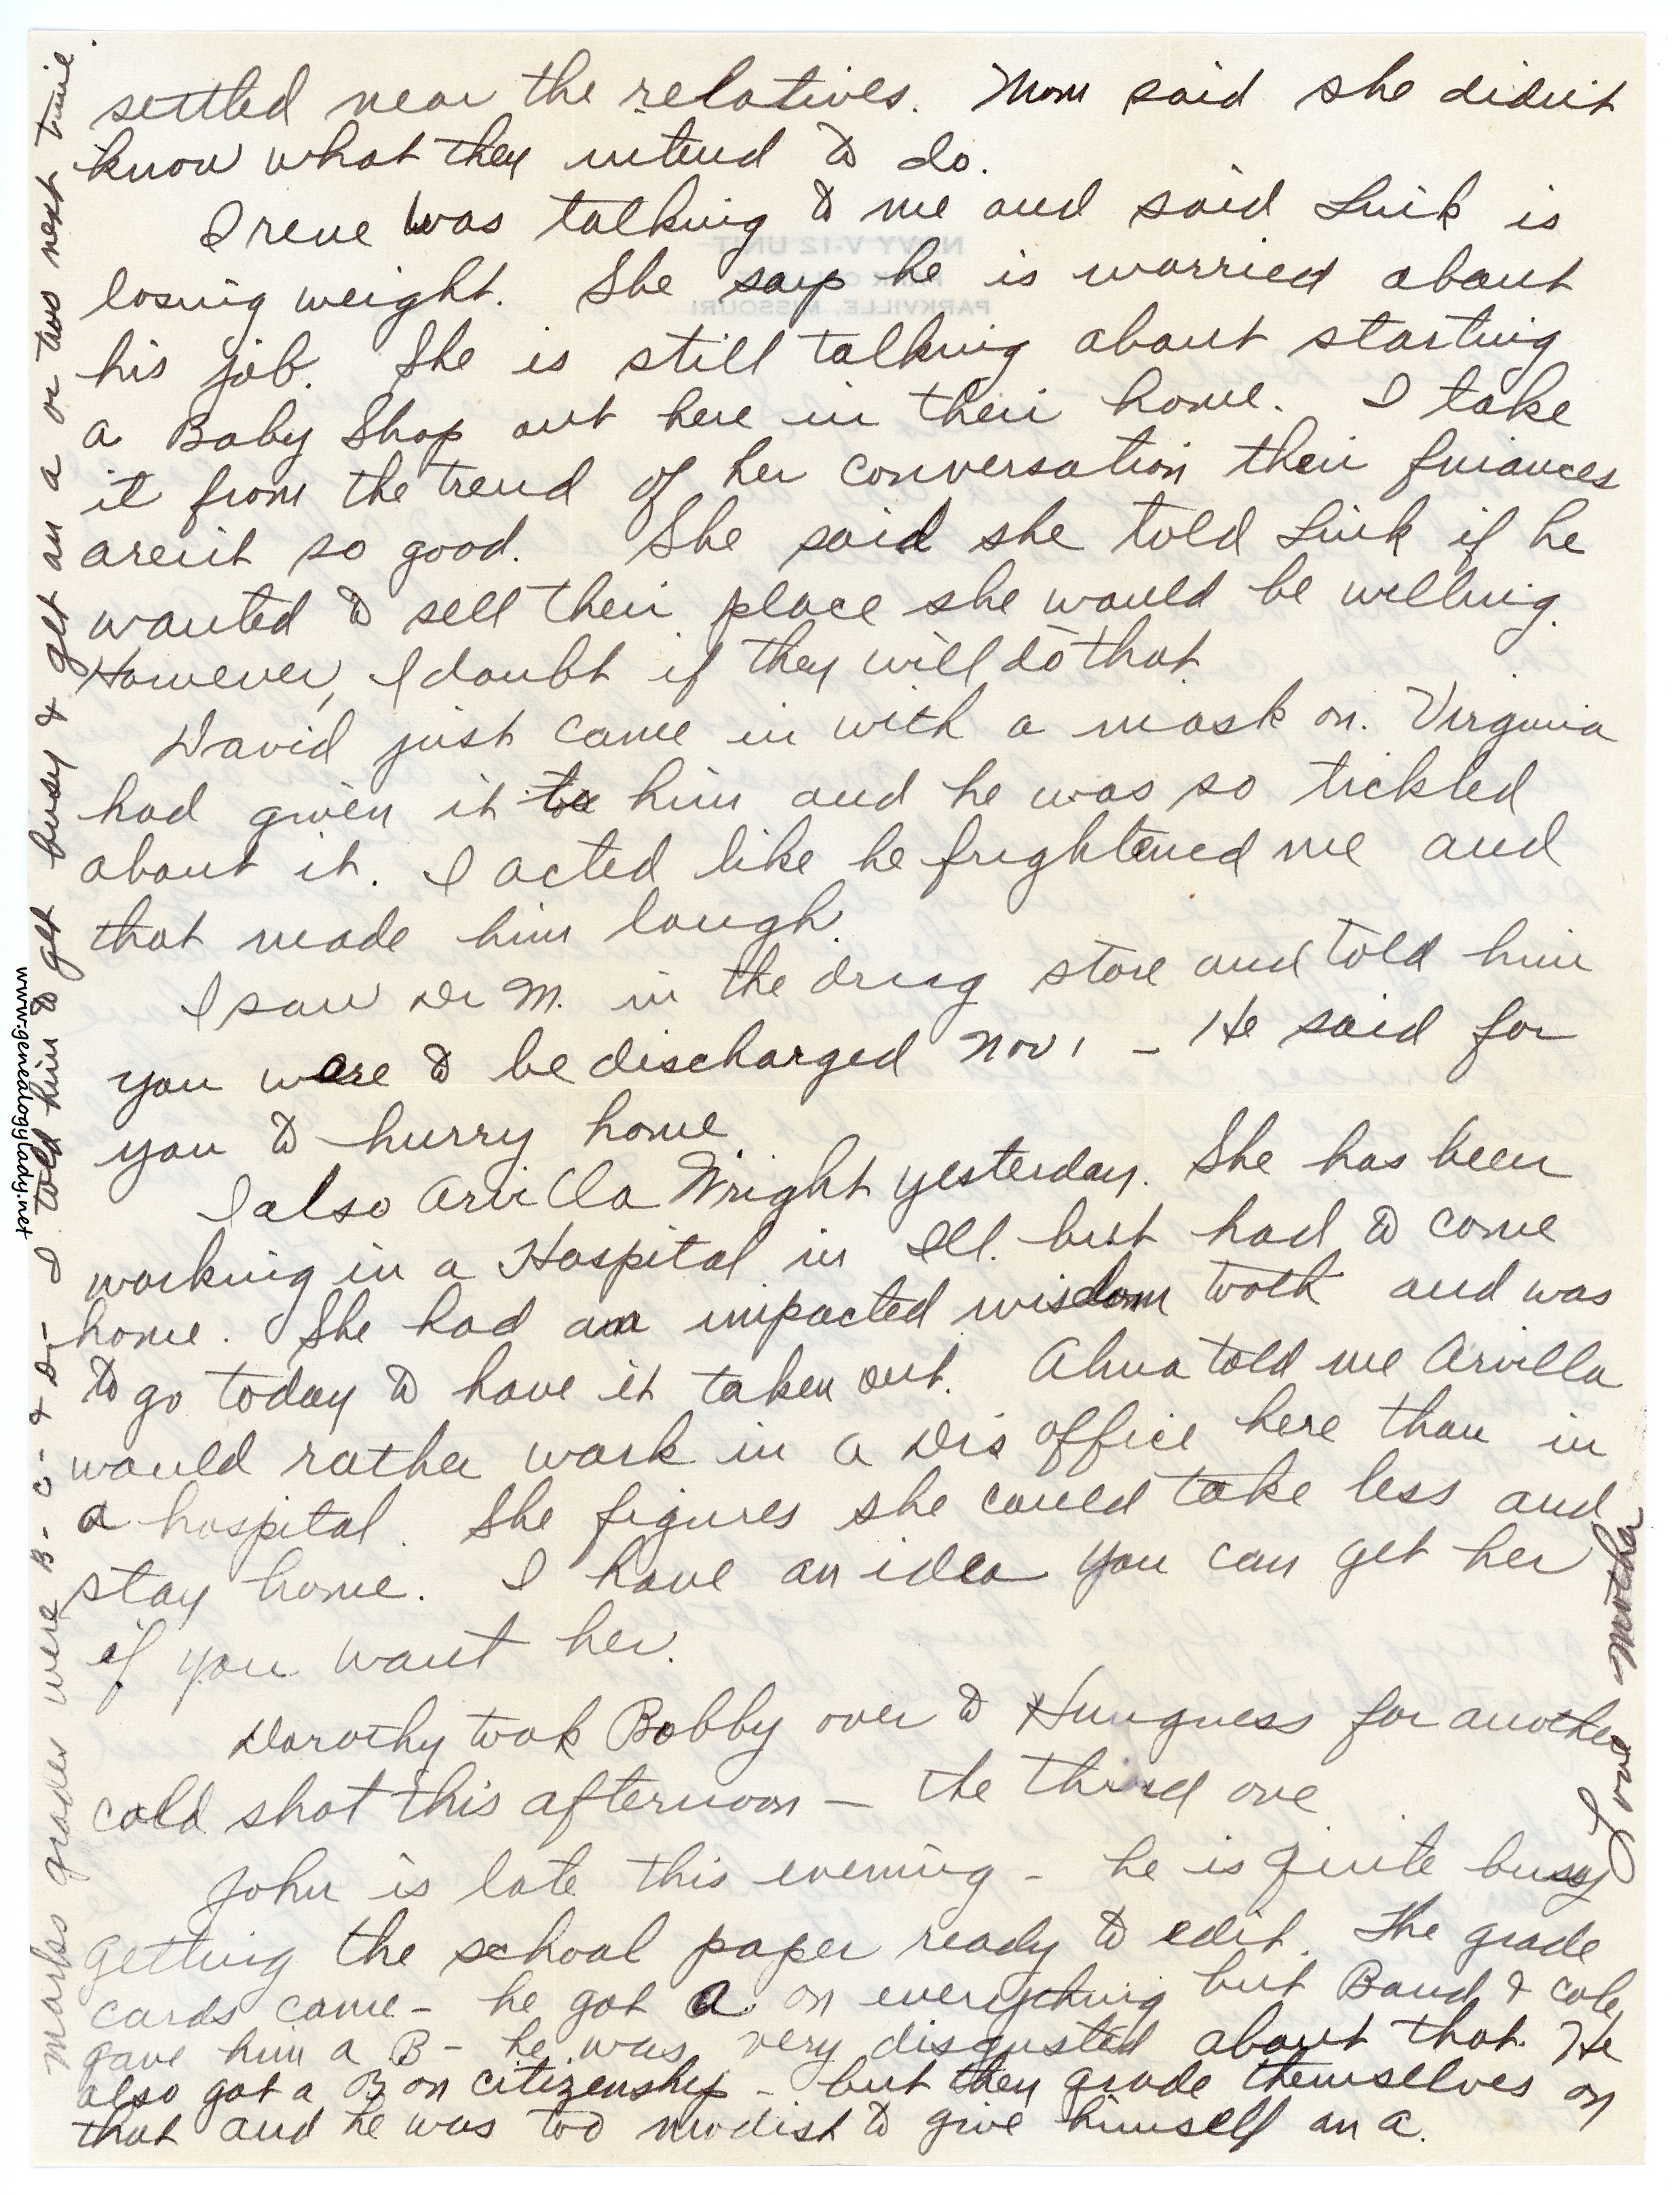 settled near the relatives. Mom said she didn't
know what they intend to do.
Irene was talking to me and said Link is
losing weight. She says he is worried about
his job. She is still talking about starting
a Baby Shop out here in their home. I take
it from the trend of her conversation their finances
aren't so good. She said she told Link if he
wanted to sell their place she would be willing.
However, I doubt if they will do that.
David just came in with a mask on. Virginia
had given it to him and he was so tickled
about it. I acted like he frightened me and
that made him laugh.
I saw Dr M. in the drug store and told him
you were to be discharged Nov 1 - He said for
you to hurry home.
I also Arvilla Wright yesterday. She has been
working in a Hospital in Ill. but had to come
home. She had an impacted wisdom tooth and was
to go today to have it taken out. Alma told me Arvilla
would rather work in a Drs office here than in
a hospital. She figures she could take less and
stay home. I have an idea you can get her
if you want her.
Dorothy took Bobby over to Hungness for another
cold shot this afternoon - the third one
John is late this evening - he is quite busy
getting the school paper ready to edit. The grade
cards came - he got A on everything but Band & Cole
gave him a B - he was very disgusted about that. He
also got a B on citizenship - but they grade themselves on
that and he was too modist to give himself an A.
Marks grades were B - C - & D - I told him to get busy & get an A or two next time.
Love Mother
www.genealogylady.net
NAVY V-12 UNIT
PARKVILLE, MISSOURI